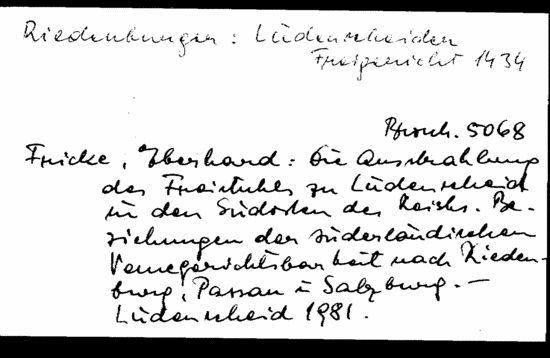 Riedenburger: Lüdenscheider
Freigericht 1434
Brosch. 5068
Fricke, Eberhard: Die Ausstrahlung
des Freistuhles zu Lüdenscheid
in den Südosten des Reichs. Be-
ziehungen der süderländischen
Vemegerichtsbarkeit nach Rieden-
burg, Passau u Salzburg. —
Lüdenscheid 1981.